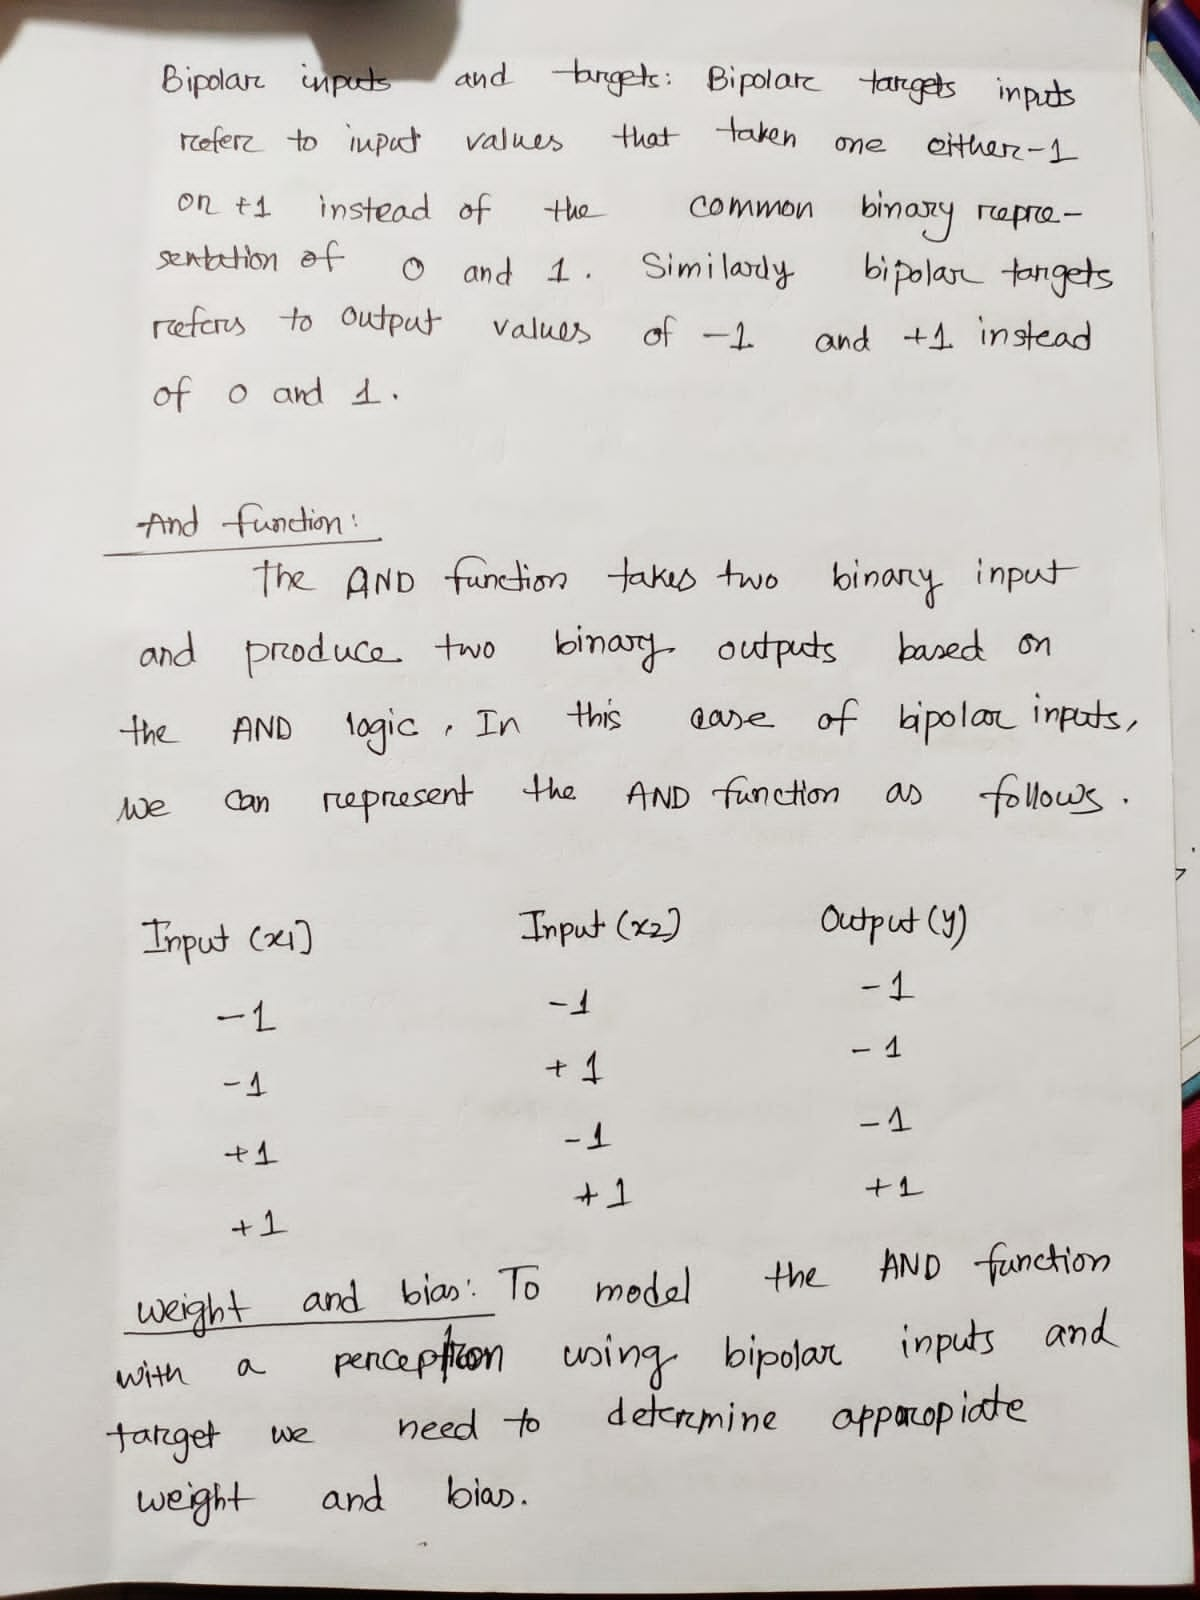 Bipolar inputs and targets: Bipolar targets inputs
refer to input values that taken one either -1
or +1 instead of the common binary repre-
sentation of 0 and 1. Similarly bipolar targets
refers to output values of -1 and +1 instead
of 0 and 1.
And function:
The AND function takes two binary input
and produce two binary outputs based on
the AND logic. In this case of bipolar inputs,
we can represent the AND function as follows.
Input (x1) Input (x2) Output (y)
-1 -1 -1
-1 +1 -1
+1 -1 -1
+1 +1 +1
weight and bias: To model the AND function
with a perceptron using bipolar inputs and
target we need to determine appropiate
weight and bias.